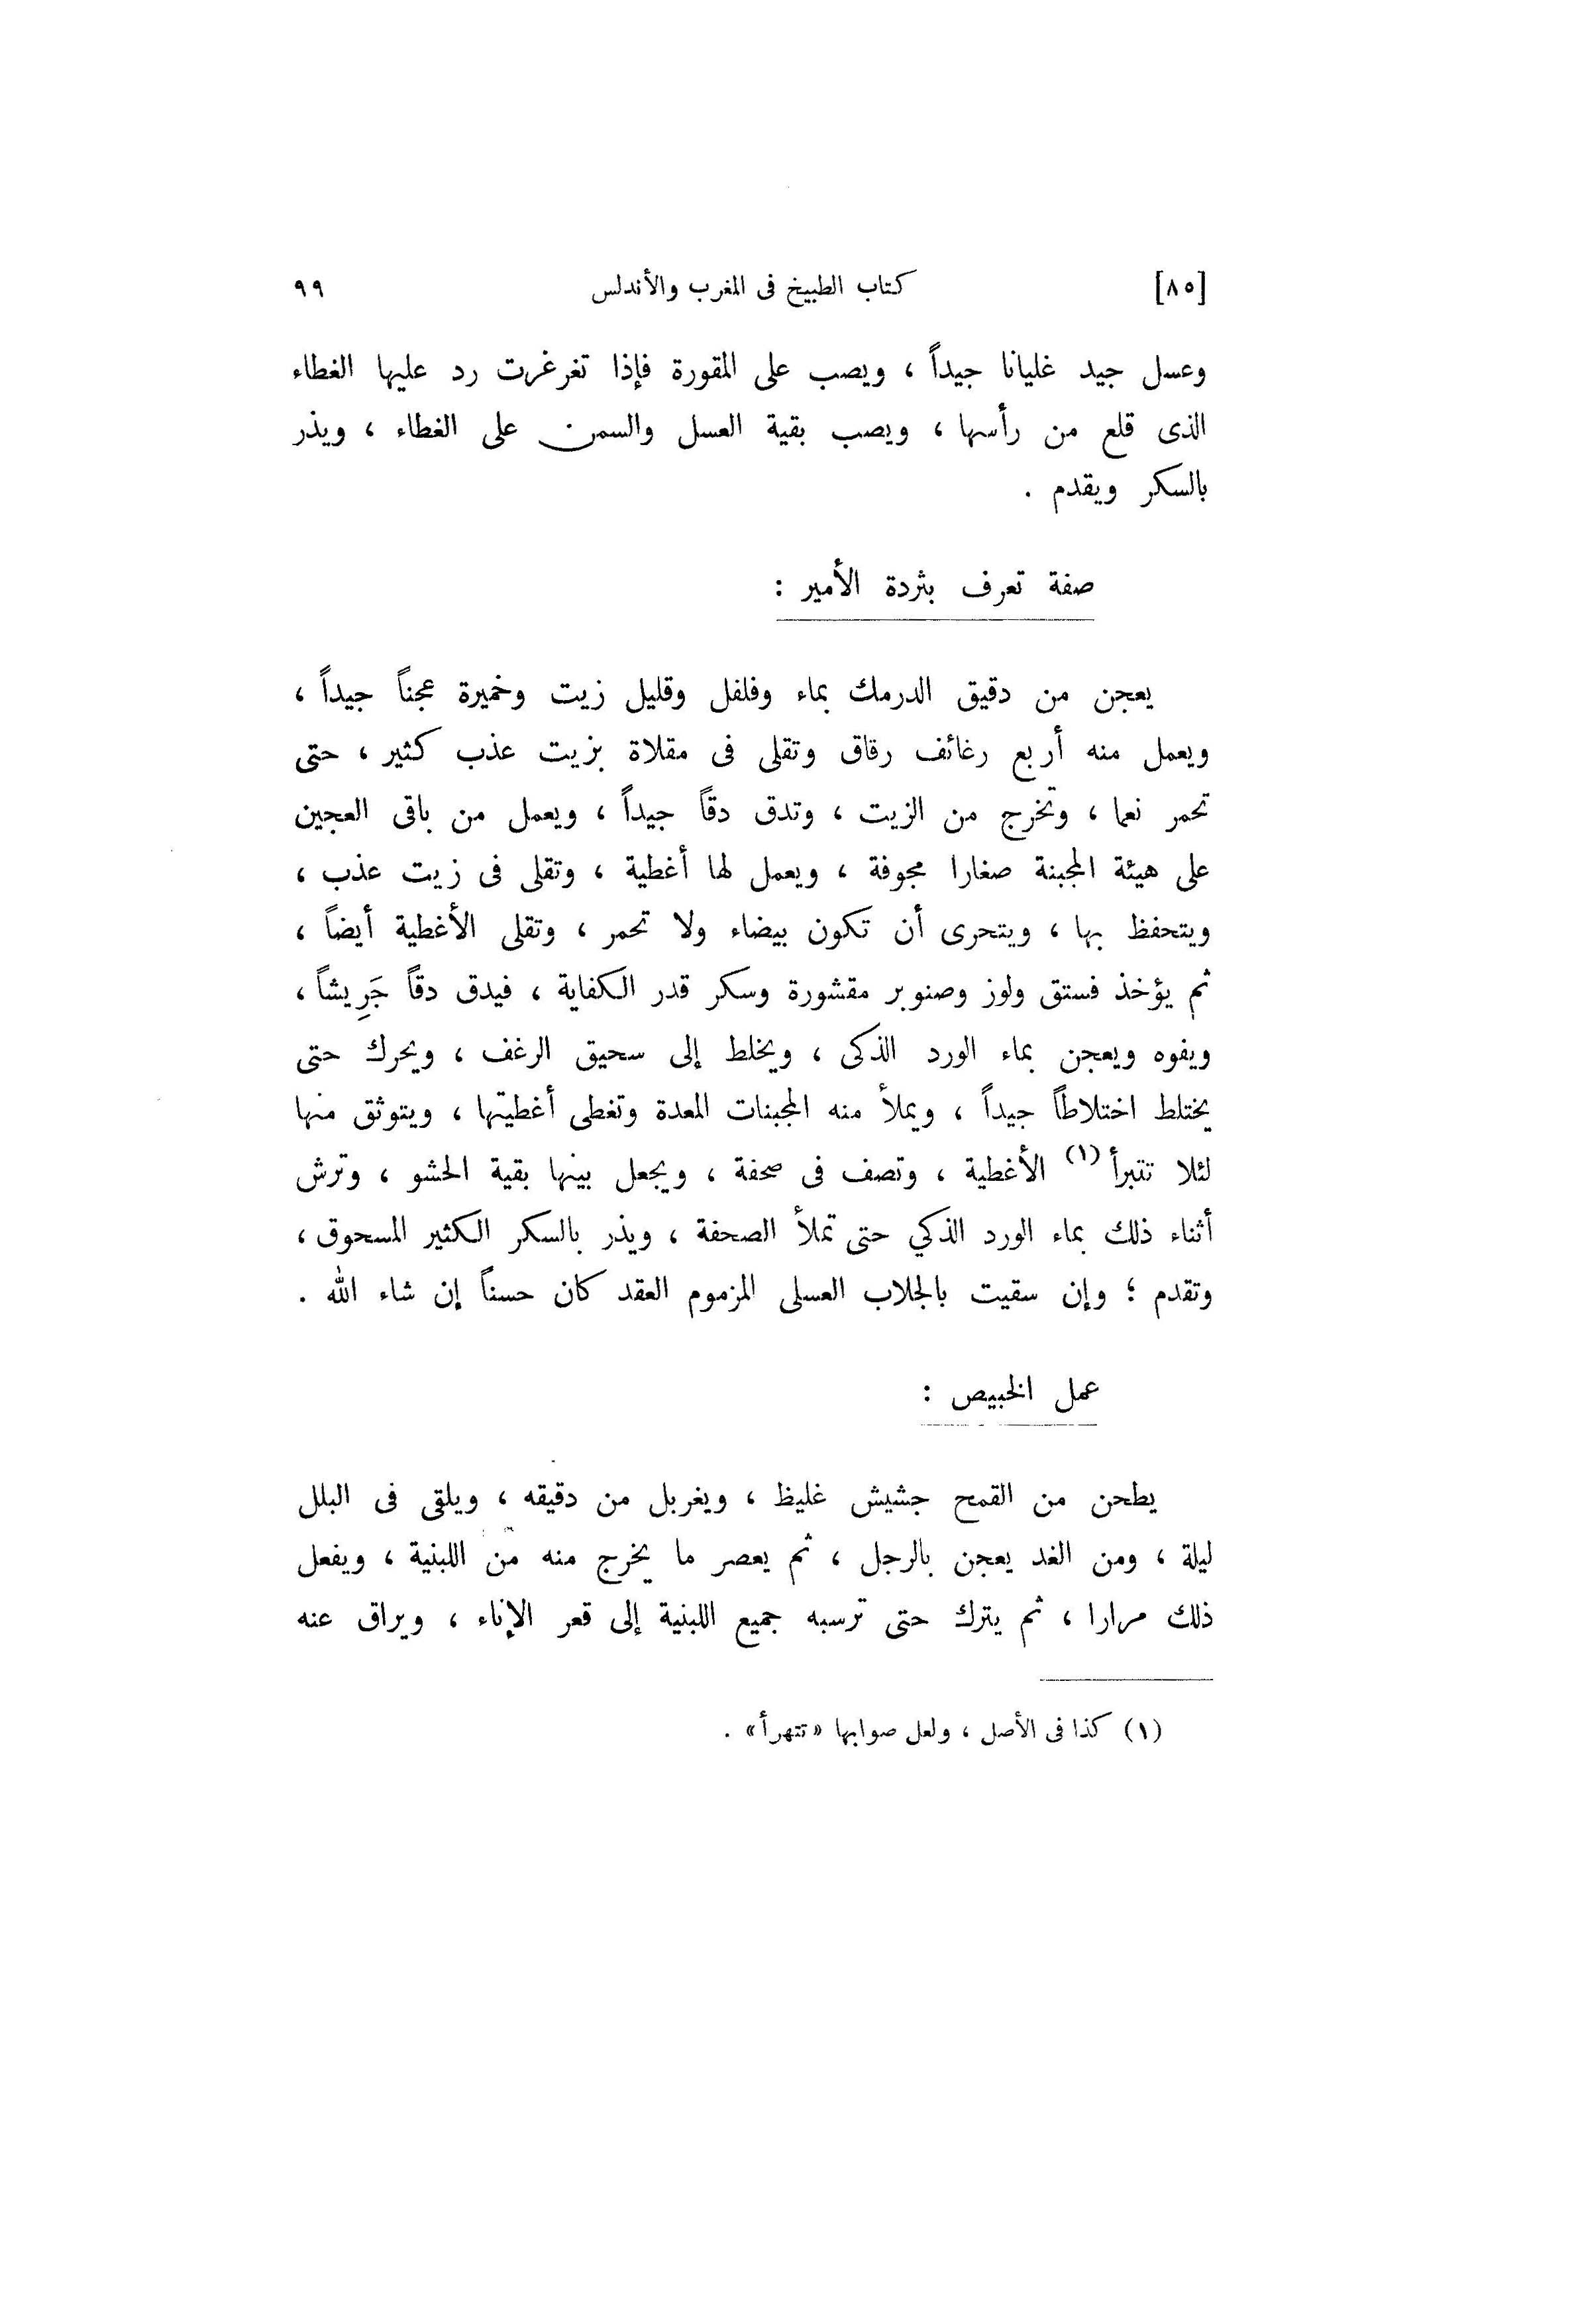 [٨٥] كتاب الطبيخ فى المغرب والأندلس ٩٩
وعسل جيد غليانا جيداً ، ويصب على المقورة فإذا تغرغرت رد عليها الغطاء
الذى قلع من رأسها ، ويصب بقية العسل والسمن على الغطاء ، ويذر
بالسكر ويقدم .
صفة تعرف بثردة الأمير :
يعجن من دقيق الدرمك بماء وفلفل وقليل زيت وخميرة عجناً جيداً ،
ويعمل منه أربع رغائف رقاق وتقلى فى مقلاة بزيت عذب كثير ، حتى
تحمر نعما ، وتخرج من الزيت ، وتدق دقاً جيداً ، ويعمل من باقى العجين
على هيئة المجبنة صغارا مجوفة ، ويعمل لها أغطية ، وتقلى فى زيت عذب ،
ويتحفظ بها ، ويتحرى أن تكون بيضاء ولا تحمر ، وتقلى الأغطية أيضاً ،
ثم يؤخذ فستق ولوز وصنوبر مقشورة وسكر قدر الكفاية ، فيدق دقاً جَرِيشاً ،
ويفوه ويعجن بماء الورد الذكى ، ويخلط إلى سحيق الرغف ، ويحرك حتى
يختلط اختلاطاً جيداً ، ويملأ منه المجبنات المعدة وتغطى أغطيتها ، ويتوثق منها
لئلا تتبرأ (١) الأغطية ، وتصف فى صحفة ، ويجعل بينها بقية الحشو ، وترش
أثناء ذلك بماء الورد الذكي حتى تملأ الصحفة ، ويذر بالسكر الكثير المسحوق ،
وتقدم ؛ وإن سقيت بالجلاب العسلى المزموم العقد كان حسناً إن شاء الله .
عمل الخبيص :
يطحن من القمح جشيش غليظ ، ويغربل من دقيقه ، ويلقى فى البلل
ليلة ، ومن الغد يعجن بالرجل ، ثم يعصر ما يخرج منه من اللبنية ، ويفعل
ذلك مرارا ، ثم يترك حتى ترسبه جميع اللبنية إلى قعر الإناء ، ويراق عنه
(١) كذا فى الأصل ، ولعل صوابها «تتهرأ» .